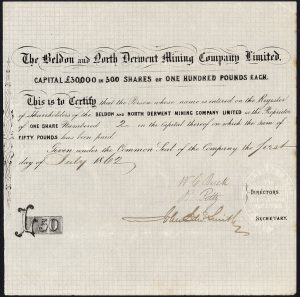 The Beldon and North Derwent Mining Company Limited.
CAPITAL £30,000 IN 300 SHARES OF ONE HUNDRED POUNDS EACH.
This is to Certify that the Person whose name is entered on the Register
of Shareholders of the BELDON AND NORTH DERWENT MINING COMPANY LIMITED is the Proprietor
of ONE SHARE Numbered 2 in the Capital thereof on which the sum of
FIFTY POUNDS has been paid.
Given under the Common Seal of the Company the first
day of July 1862
DIRECTORS.
SECRETARY.
£50